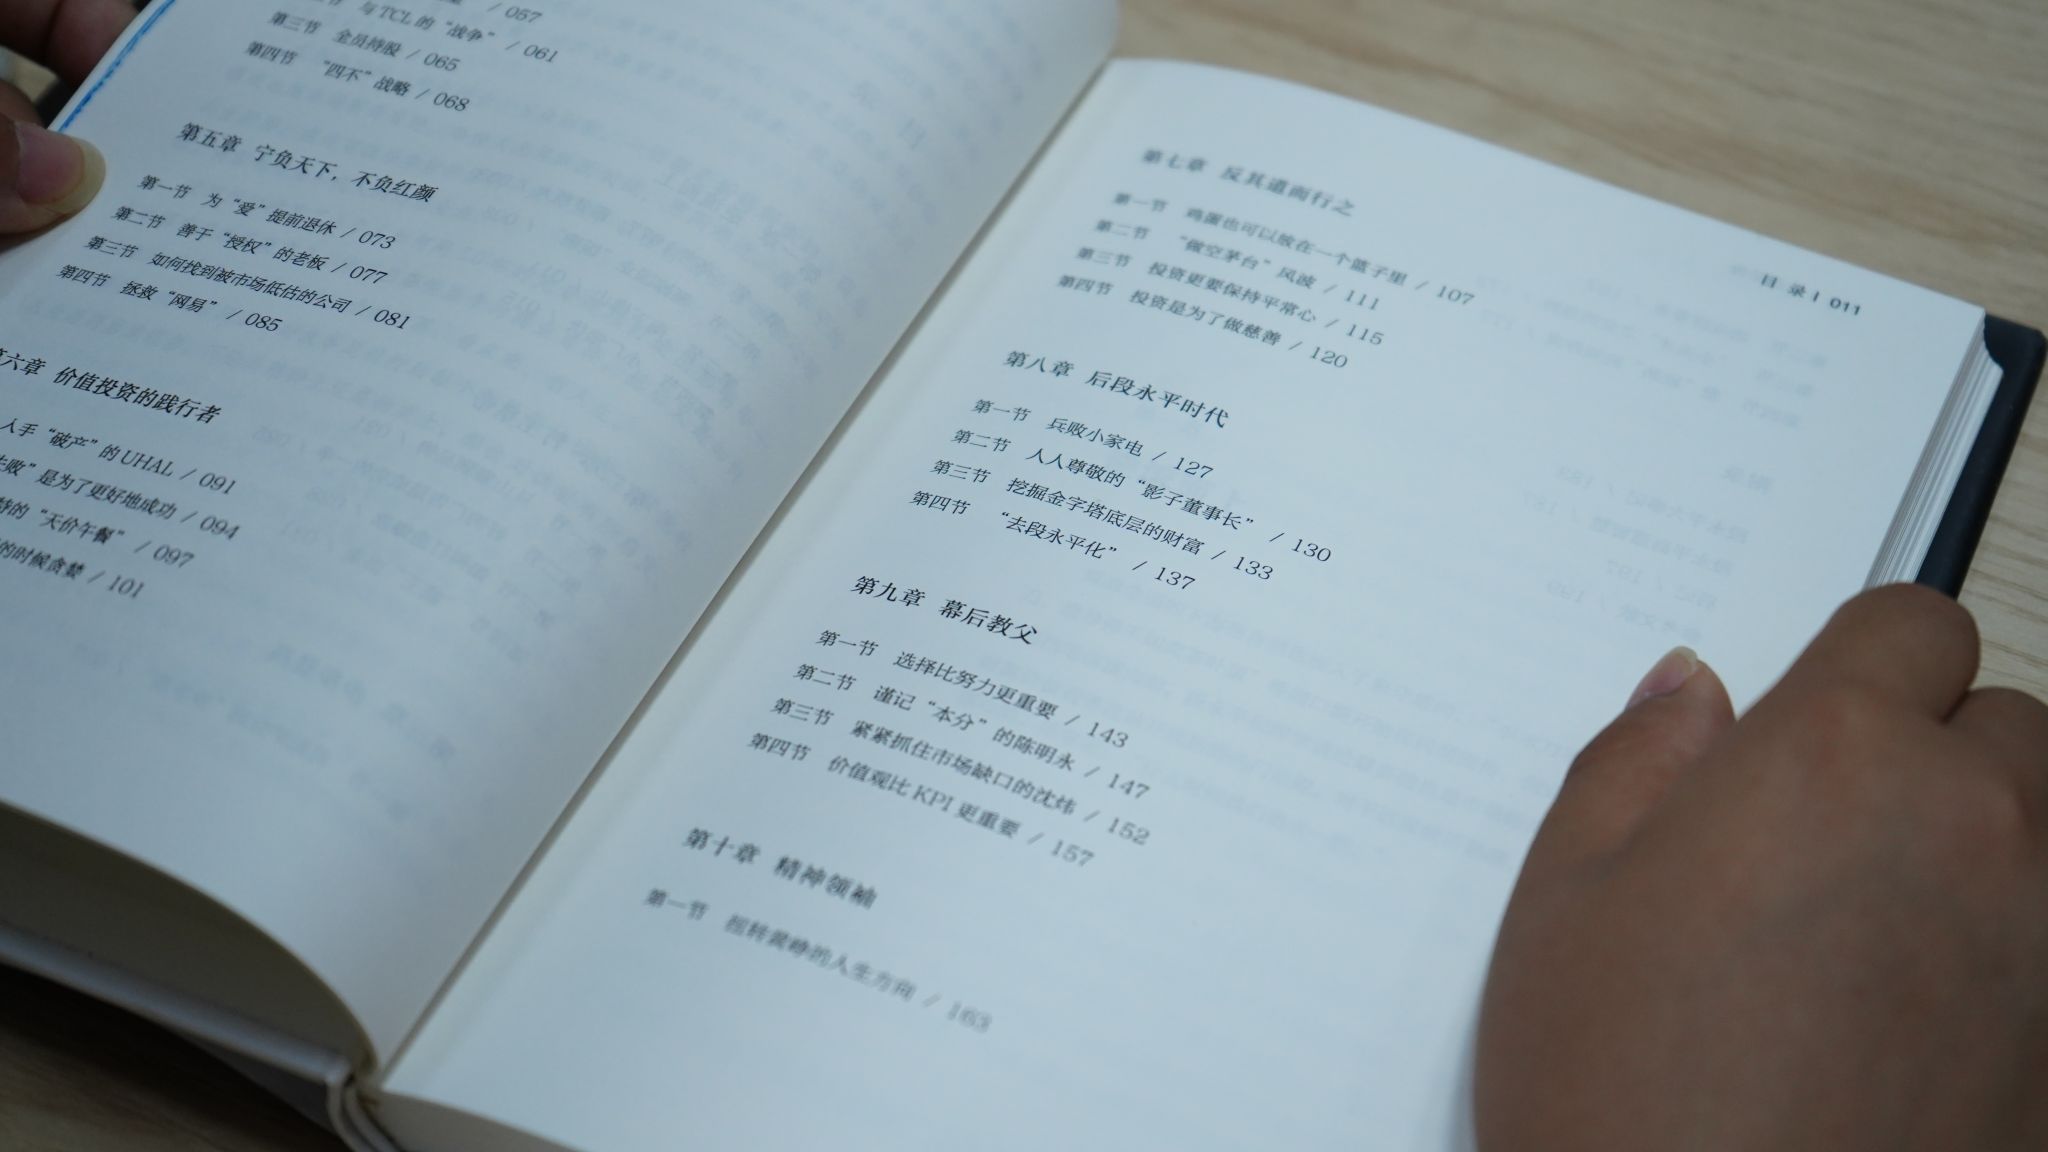 / 057
与TCL的“战争” / 061
第三节 全员持股 / 065
第四节 “四不”战略 / 068
第五章 宁负天下，不负红颜
第一节 为“爱”提前退休 / 073
第二节 善于“授权”的老板 / 077
第三节 如何找到被市场低估的公司 / 081
第四节 拯救“网易” / 085
六章 价值投资的践行者
人手“破产”的UHAL / 091
败”是为了更好地成功 / 094
特的“天价午餐” / 097
的时候贪婪 / 101
目录 | 011
第七章 反其道而行之
第一节 鸡蛋也可以放在一个篮子里 / 107
第二节 “做空茅台”风波 / 111
第三节 投资更要保持平常心 / 115
第四节 投资是为了做慈善 / 120
第八章 后段永平时代
第一节 兵败小家电 / 127
第二节 人人尊敬的“影子董事长” / 130
第三节 挖掘金字塔底层的财富 / 133
第四节 “去段永平化” / 137
第九章 幕后教父
第一节 选择比努力更重要 / 143
第二节 谨记“本分”的陈明永 / 147
第三节 紧紧抓住市场缺口的沈炜 / 152
第四节 价值观比KPI更重要 / 157
第十章 精神领袖
第一节 扭转黄峥的人生方向 / 163